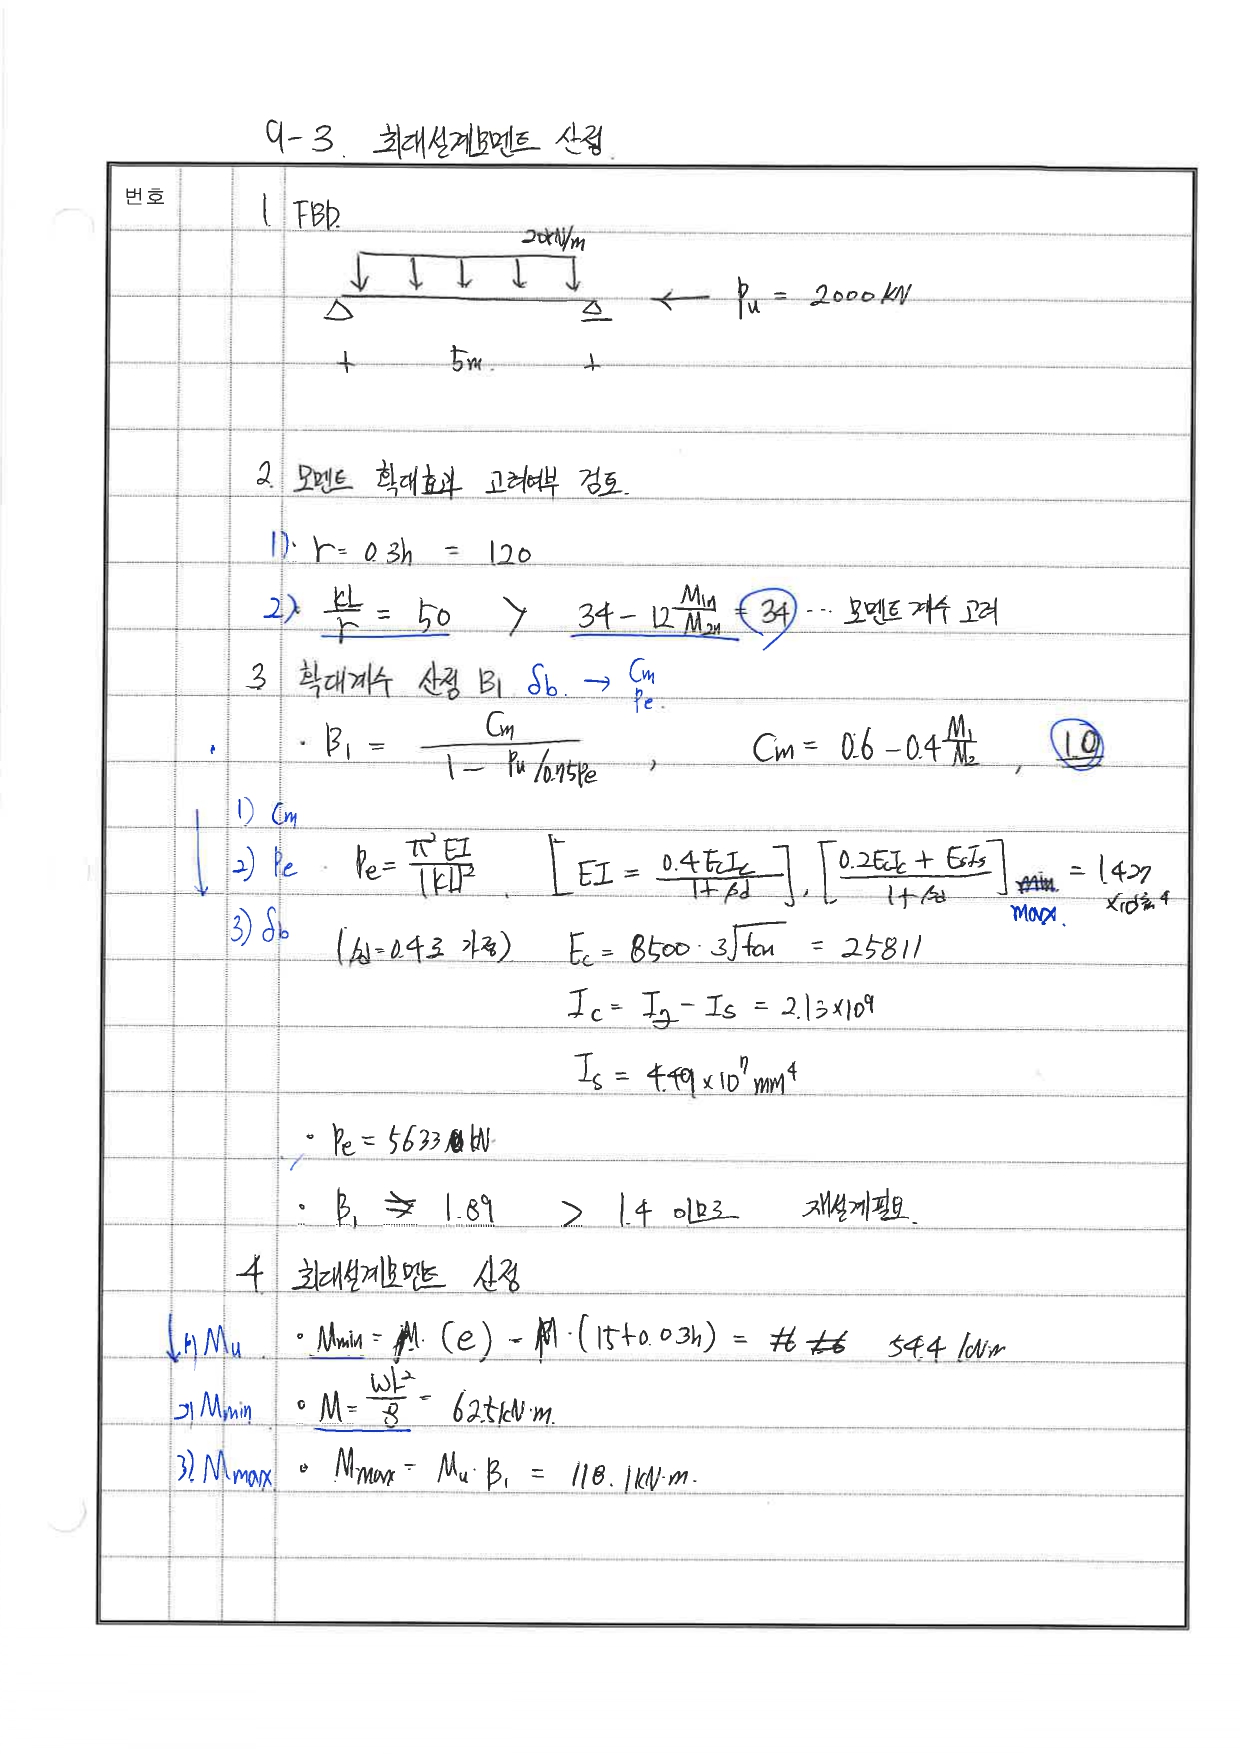 9-3. 최대설계모멘트 산정
번호
1 FBD.
20kN/m
← Pu = 2000 kN
5m.
2. 모멘트 확대효과 고려여부 검토.
1) r = 0.3h = 120
2) kL/r = 50 > 34 - 12 M1n/M2n = 34 ... 모멘트계수 고려
3 확대계수 산정 B1 δb. → Cm Pe.
· B1 = Cm / (1 - Pu/0.75Pe) , Cm = 0.6 - 0.4 M1/M2 , 1.0
1) Cm
2) Pe · Pe = π²EI/(kL)² , [EI = 0.4EcIc/(1+βd)], [(0.2EcIc + EsIs)/(1+βd)] max. = 1.427
3) δb (βd=0.4로 가정) Ec = 8500 · 3√fcu = 25811
Ic = Ig - Is = 2.13×10⁹
Is = 4.49×10⁷ mm⁴
· Pe = 5633 kN
· B1 ⇒ 1.89 > 1.4 이므로 재설계필요.
4 최대설계모멘트 산정
1) Mu · Mmin = M·(e) - M·(15+0.03h) = 54.4 kN·m
2) Mmin · M = wL²/8 = 62.5kN·m.
3) Mmax · Mmax = Mu·B1 = 118.1kN·m.